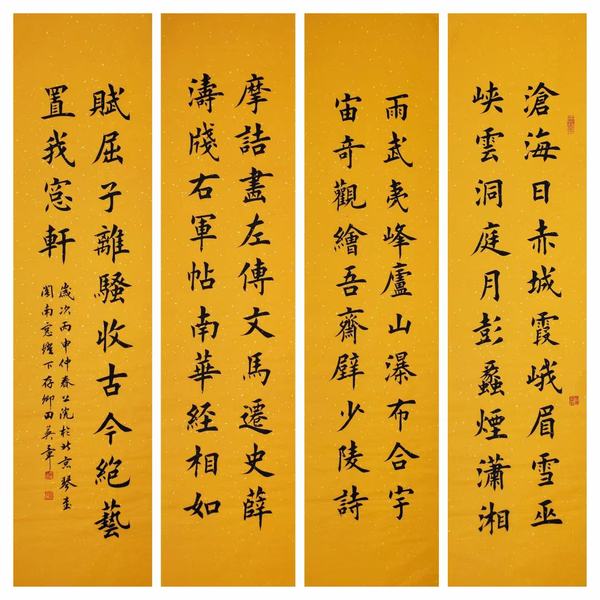 滄海日赤城霞峨眉雪巫
峽雲洞庭月彭蠡煙瀟湘
雨武夷峰廬山瀑布合宇
宙奇觀繪吾齋壁少陵詩
摩詰畫左傳文馬遷史薛
濤牋右軍帖南華經相如
賦屈子離騷收古今絕藝
置我窓軒
歲次丙申仲春上浣於北京琴臺
閣南窓燈下存卿田英章